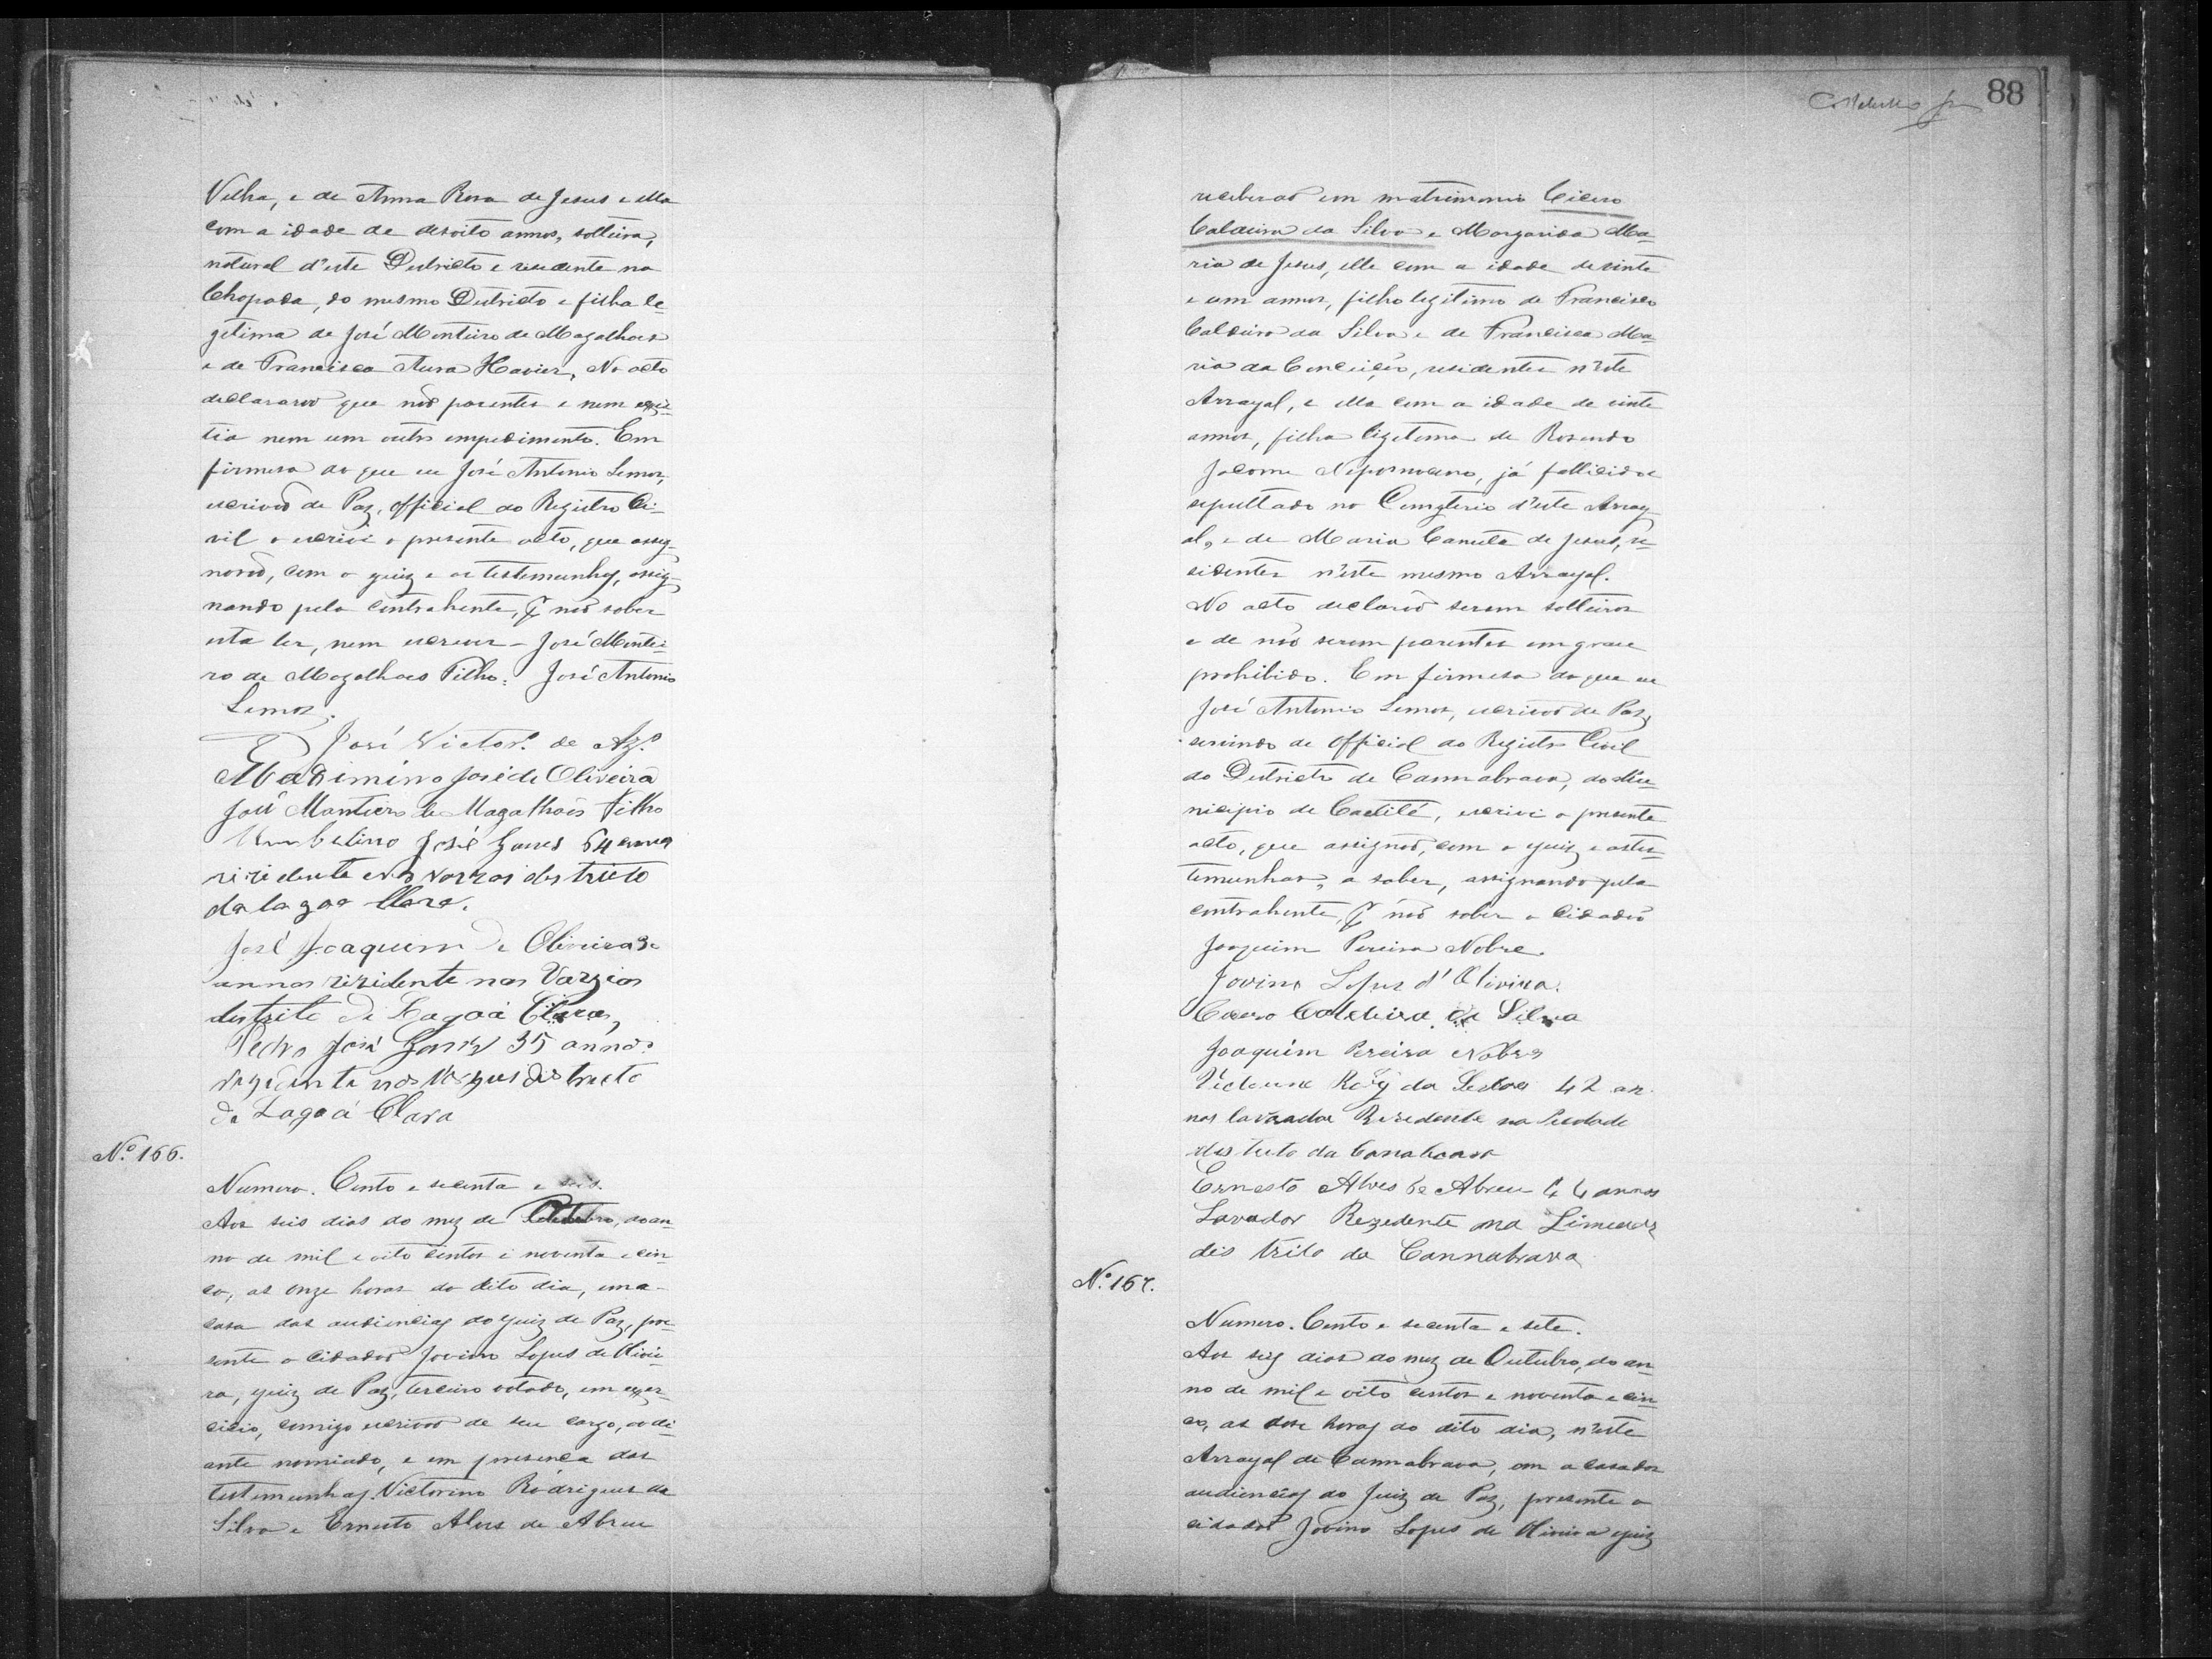 Velha, e de Anna Rosa de Jesus e ella
com a idade de desoito annos, solteira,
natural d'este Districto e residente na
Chapada, do mesmo Districto e filha le-
gitima de José Monteiro de Magalhaes
e de Francisca Aura Xavier, No acto
declararão que não parentes e nem exis-
tia nem um outro impedimento. Em
firmesa do que eu José Antonio Lemos,
escrivão de Paz, official do Registro Ci-
vil o escrivi o presente acto, que assig-
narão, com o juiz e as testemunhas, assig-
nando pela contrahente, p não saber
esta ler, nem escrever - José Montei-
ro de Magalhaes Filho: José Antonio
Lemos.
José Victor.º de Az.º
José de Oliveira
José Monteiro de Magalhães Filho
Umbelino José Gomes 64 annos
districto
da lagoa Clara.
José Joaquim de Oliveira
annos rizidente nas Vargias
destrito de Lagoa Clara,
Pedro José 35 annos
nos districto
da Lagoa Clara
Nº 166.
Numero. Cento e secenta e seis.
Aos seis dias do mez de Outubro, do an-
no de mil e oito centos e noventa e cin-
co, as onze horas do dito dia, em a
casa das audiencias do Juiz de Paz, pre-
sente o cidadão Jovino Lopes de Olivei-
ra, juiz de Paz, terceiro votado, em exer-
cicio, comigo escrivão de seu cargo, ao di-
ante nomiado, e em presenca das
testemunhas Victorino Rodrigues da
Silva e Ernesto Alves de Abreu
88
receberão em matrimonio Cicero
Caldeira da Silva e Margarida Ma-
ria de Jesus, elle com a idade de vinte
e um annos, filho legitimo de Francisco
Caldeira da Silva e de Francisca Ma-
ria da Conceição, residentes n'este
Arrayal, e ella com a idade de vinte
annos, filha ligetema de Rosendo
Jacome Nepomoceno, já fallicido e
sepultado no Cemeterio d'este Array-
al, e de Maria Canuta de Jesus, re-
sidentes n'este mesmo Arrayal.
No acto declarão serem solteiros
e de não serem parentes em grau
prohibido. Em firmesa do que eu
José Antonio Lemos, escrivão de Paz,
servindo de official do Registro Civil
do Districto de Cannabrava, do Mu-
nicipio de Caetité, escrivi o presente
acto, que assignão, com o juiz e as tes-
temunhas, a saber, assignando pela
contrahente, p não saber o cidadão
Joaquim Pereira Nobre.
Jovino Lopes d'Oliveira.
Cicero Caldeira da Silva
Joaquim Pereira Nobre
Victorino Roiz da Silva 42 an-
nos lavrador Rezedente na Piedade
destrito da Canabrava
Ernesto Alves de Abreu 44 annos
Lavador Rezedente na Limeira
dis trito da Cannabrava
Nº 167.
Numero. Cento e secenta e sete.
Aos seis dias do mez de Outubro, do an-
no de mil e oito centos e noventa e cin-
co, as dose horas do dito dia, n'este
Arrayal de Cannabrava, em a casa das
audiencias do Juiz de Paz, presente o
cidadão Jovino Lopes de Oliveira juiz